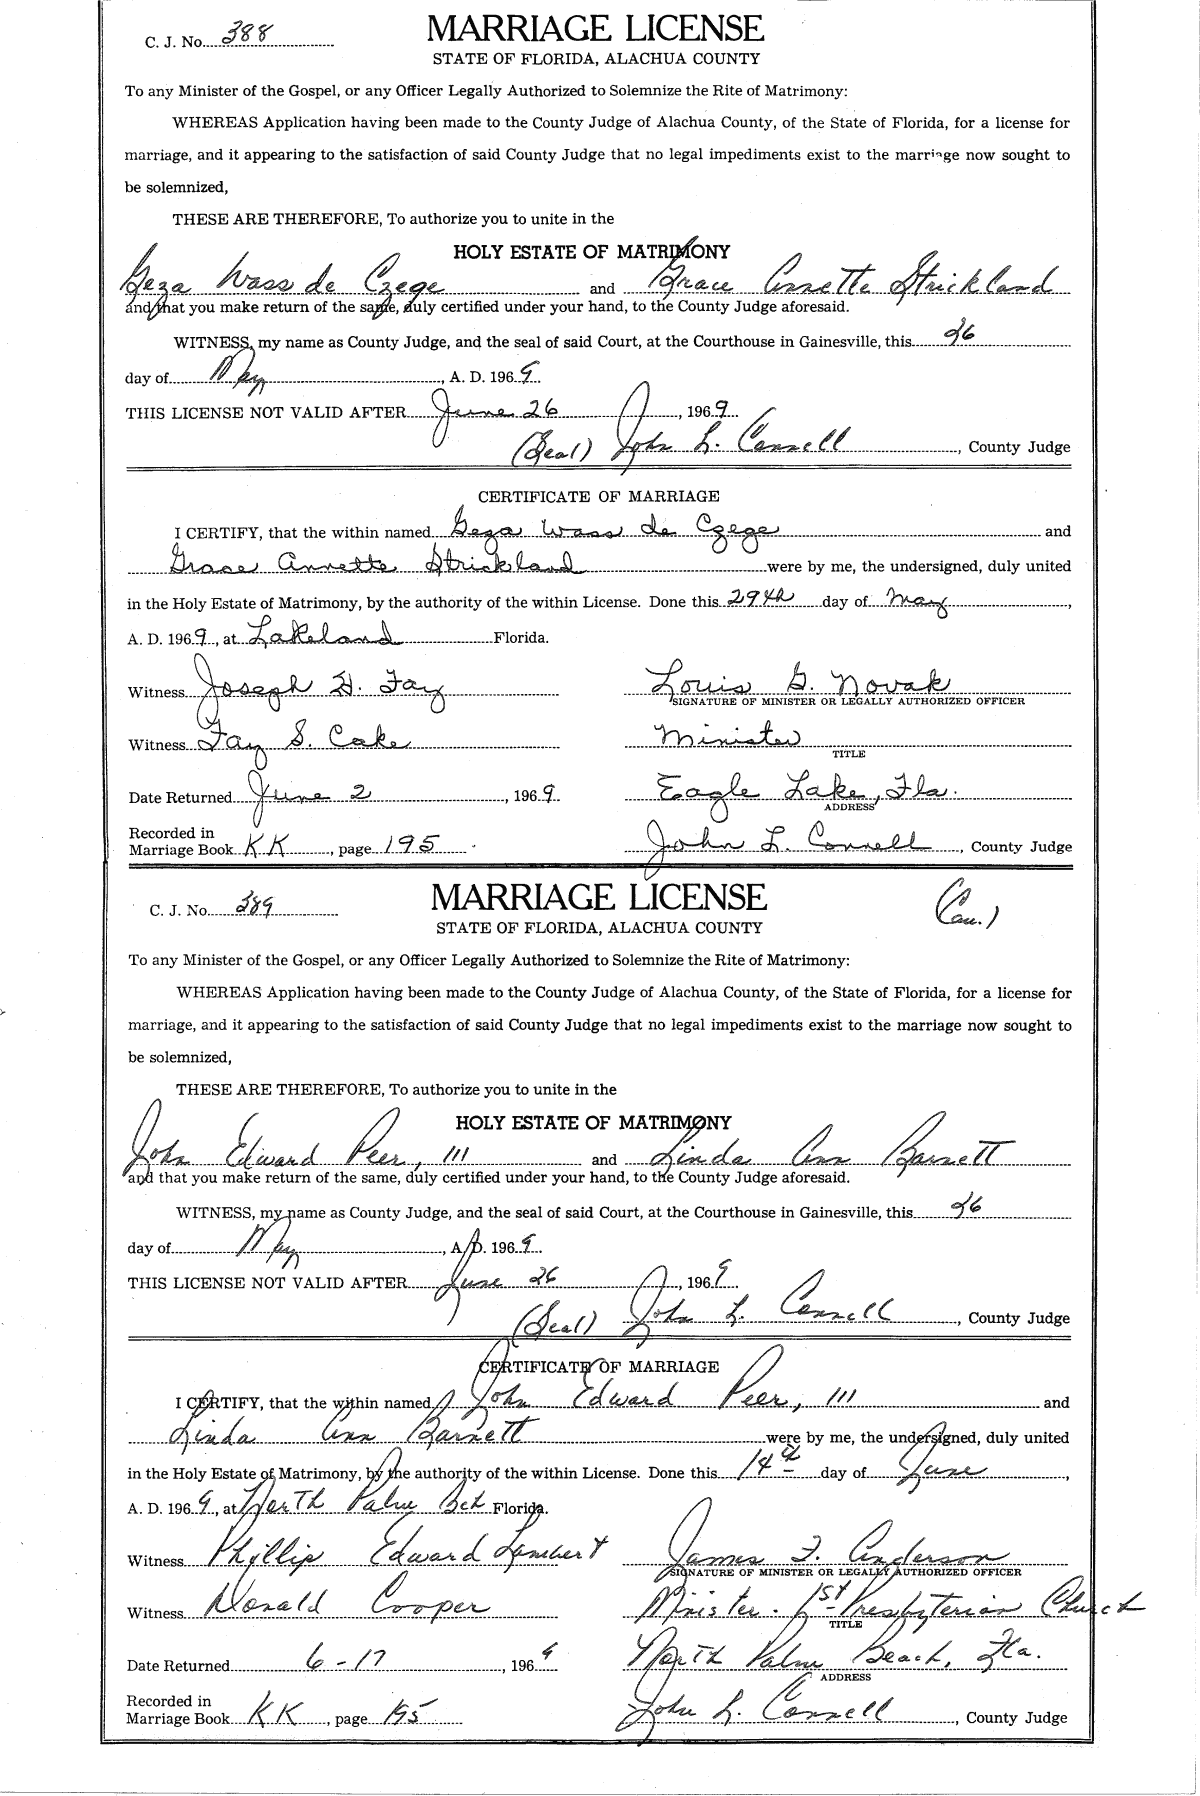 C. J. No. 388
MARRIAGE LICENSE
STATE OF FLORIDA, ALACHUA COUNTY
To any Minister of the Gospel, or any Officer Legally Authorized to Solemnize the Rite of Matrimony:
WHEREAS Application having been made to the County Judge of Alachua County, of the State of Florida, for a license for
marriage, and it appearing to the satisfaction of said County Judge that no legal impediments exist to the marriage now sought to
be solemnized,
THESE ARE THEREFORE, To authorize you to unite in the
HOLY ESTATE OF MATRIMONY
Geza Wass de Czege and Grace Annette Strickland
and that you make return of the same, duly certified under your hand, to the County Judge aforesaid.
WITNESS, my name as County Judge, and the seal of said Court, at the Courthouse in Gainesville, this 26
day of May, A. D. 1969.
THIS LICENSE NOT VALID AFTER June 26, 1969
(Seal) John L. Connell, County Judge
CERTIFICATE OF MARRIAGE
I CERTIFY, that the within named Geza Wass de Czege and
Grace Annette Strickland were by me, the undersigned, duly united
in the Holy Estate of Matrimony, by the authority of the within License. Done this 29th day of May,
A. D. 1969, at Lakeland Florida.
Witness Joseph H. Fay Louis G. Novak
SIGNATURE OF MINISTER OR LEGALLY AUTHORIZED OFFICER
Witness Fay S. Cake Minister
TITLE
Date Returned June 2, 1969 Eagle Lake, Fla.
ADDRESS
Recorded in
Marriage Book KK, page 195 John L. Connell, County Judge
C. J. No. 389
MARRIAGE LICENSE (Cau.)
STATE OF FLORIDA, ALACHUA COUNTY
To any Minister of the Gospel, or any Officer Legally Authorized to Solemnize the Rite of Matrimony:
WHEREAS Application having been made to the County Judge of Alachua County, of the State of Florida, for a license for
marriage, and it appearing to the satisfaction of said County Judge that no legal impediments exist to the marriage now sought to
be solemnized,
THESE ARE THEREFORE, To authorize you to unite in the
HOLY ESTATE OF MATRIMONY
John Edward Peer, III and Linda Ann Barnett
and that you make return of the same, duly certified under your hand, to the County Judge aforesaid.
WITNESS, my name as County Judge, and the seal of said Court, at the Courthouse in Gainesville, this 26
day of May, A. D. 1969.
THIS LICENSE NOT VALID AFTER June 26, 1969
(Seal) John L. Connell, County Judge
CERTIFICATE OF MARRIAGE
I CERTIFY, that the within named John Edward Peer, III and
Linda Ann Barnett were by me, the undersigned, duly united
in the Holy Estate of Matrimony, by the authority of the within License. Done this 14th day of June,
A. D. 1969, at North Palm Bch Florida.
Witness Phyllip Edward Lambert James F. Anderson
SIGNATURE OF MINISTER OR LEGALLY AUTHORIZED OFFICER
Witness Donald Cooper Minister. 1st Presbyterian Church
TITLE
Date Returned 6-17, 1969 North Palm Beach, Fla.
ADDRESS
Recorded in
Marriage Book KK, page 195 John L. Connell, County Judge